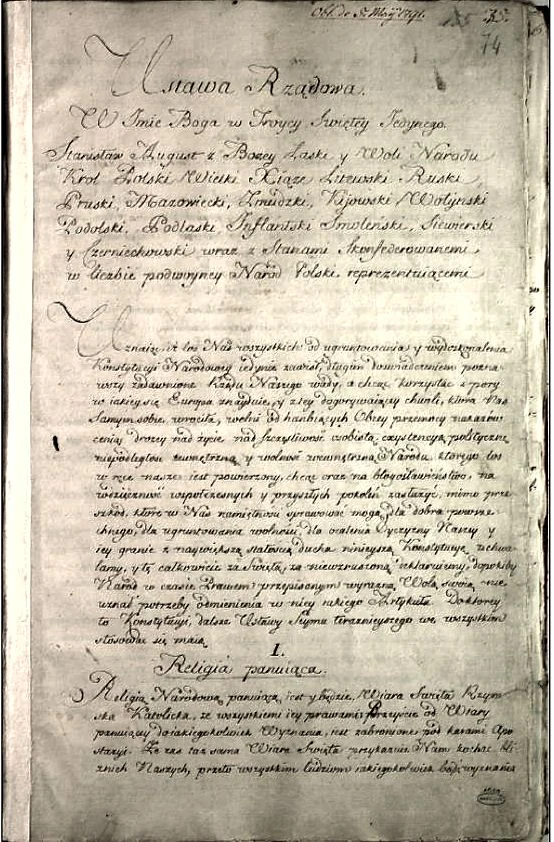 Obl. de 5. Maij 1791.
74
Ustawa Rządowa.
W Imie Boga w Troycy Swiętey Jedynego.
Stanisław August z Bożey Łaski y Woli Narodu
Krol Polski Wielki Xiąże Litewski Ruski
Pruski, Mazowiecki, Zmudzki, Kijowski Wołyński
Podolski, Podlaski, Inflantski Smoleński, Siewierski
y Czerniechowski wraz z Stanami Skonfederowanemi
w liczbie podwoyney Naród Polski reprezentuiącemi
Uznaiąc, iż los Nas wszystkich od ugruntowania y wydoskonalenia
Konstytucyi Narodowey iedynie zawisł, długim doswiadczeniem pozna-
wszy zadawnione Rządu Naszego wady, a chcąc korzystac z pory
w iakiey się Europa znayduie, y z tey dogorywaiącey chwili, ktora Nas
samym sobie wrociła, wolni od hanbiących Obcey przemocy nakazów
ceniąc drożey nad życie, nad szczęsliwosc osobistą, exystencyą polityczną
niepodległosc zewnętrzną y wolność wewnętrzną Narodu, ktorego los
w ręce nasze iest powierzony, chcąc oraz na błogosławienstwo, na
wdzięczność współczesnych y przyszłych pokoleń zasłużyc, mimo prze-
szkód, które w Nas namiętnosci sprawować mogą, dla dobra powsze-
chnego, dla ugruntowania wolności, dla ocalenia Oyczyzny Naszey y
iey granic z naywiększą stałością ducha ninieyszą Konstytucyę uchwa-
lamy, y tę całkowicie za Swiętą, za niewzruszoną deklaruiemy, dopokiby
Naród w czasie Prawem przepisanym wyrazną Wolą swoią nie
uznał potrzeby odmienienia w niey iakiego Artykułu. Do ktorey
to Konstytucyi, dalsze Ustawy Seymu teraznieyszego we wszystkim
stosować się maią.
I.
Religia panuiąca.
Religią Narodową panuiącą iest y będzie Wiara Swięta Rzym-
ska Katolicka, ze wszystkiemi iey prawami, Przeyscie od Wiary
panuiącey do iakiegokolwiek Wyznania, iest zabronione pod karami Apo-
stazyi. Że zas taż sama Wiara Swięta przykazuie Nam kochać bli-
znich Naszych, przeto wszystkim ludziom iakiegokolwiek bądź wyznania